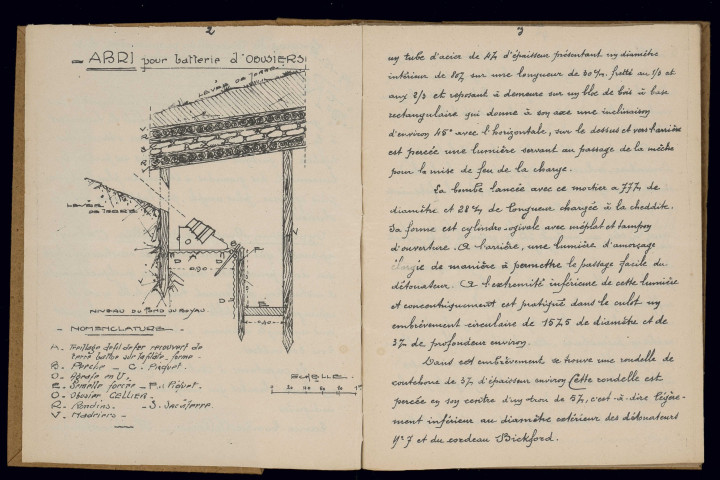 2
- ABRI pour batterie d'OBUSIERS
LEVÉE DE TERRE
LEVÉE
DE TERRE
0.90
NIVEAU DU FOND DU BOYAU
- NOMENCLATURE -
A - Treillage de fil de fer recouvert de
terre battue sur la plate-forme -
B - Perche - C - Piquet -
D - Agrafe en U -
E - Semelle forcée - F - Piquet -
O - Obusier CELLIER -
R - Rondins - S - Sac à terre -
V - Madriers -
ECHELLE
3
un tube d'acier de 4% d'épaisseur présentant un diamètre
intérieur de 80% sur une longueur de 30%, fretté au 1/3 et
aux 2/3 et reposant à demeure sur un bloc de bois à base
rectangulaire qui donne à son axe une inclinaison
d'environ 45° avec l'horizontale, sur le dessus et vers l'arrière
est percée une lumière servant au passage de la mèche
pour la mise de feu de la charge.
La bombe lancée avec ce mortier a 77% de
diamètre et 28% de longueur chargée à la cheddite.
Sa forme est cylindro-ogivale avec méplat et tampon
d'ouverture. A l'arrière, une lumière d'amorçage
élargie de manière à permettre le passage facile du
détonateur. A l'extrémité inférieure de cette lumière
et concentriquement est pratiqué dans le culot un
embrèvement circulaire de 15%5 de diamètre et de
3% de profondeur environ.
Dans cet embrèvement se trouve une rondelle de
caoutchouc de 3% d'épaisseur environ Cette rondelle est
percée en son centre d'un trou de 5%, c'est-à-dire légère-
ment inférieur au diamètre extérieur des détonateurs
N° 7 et du cordeau Bickford.